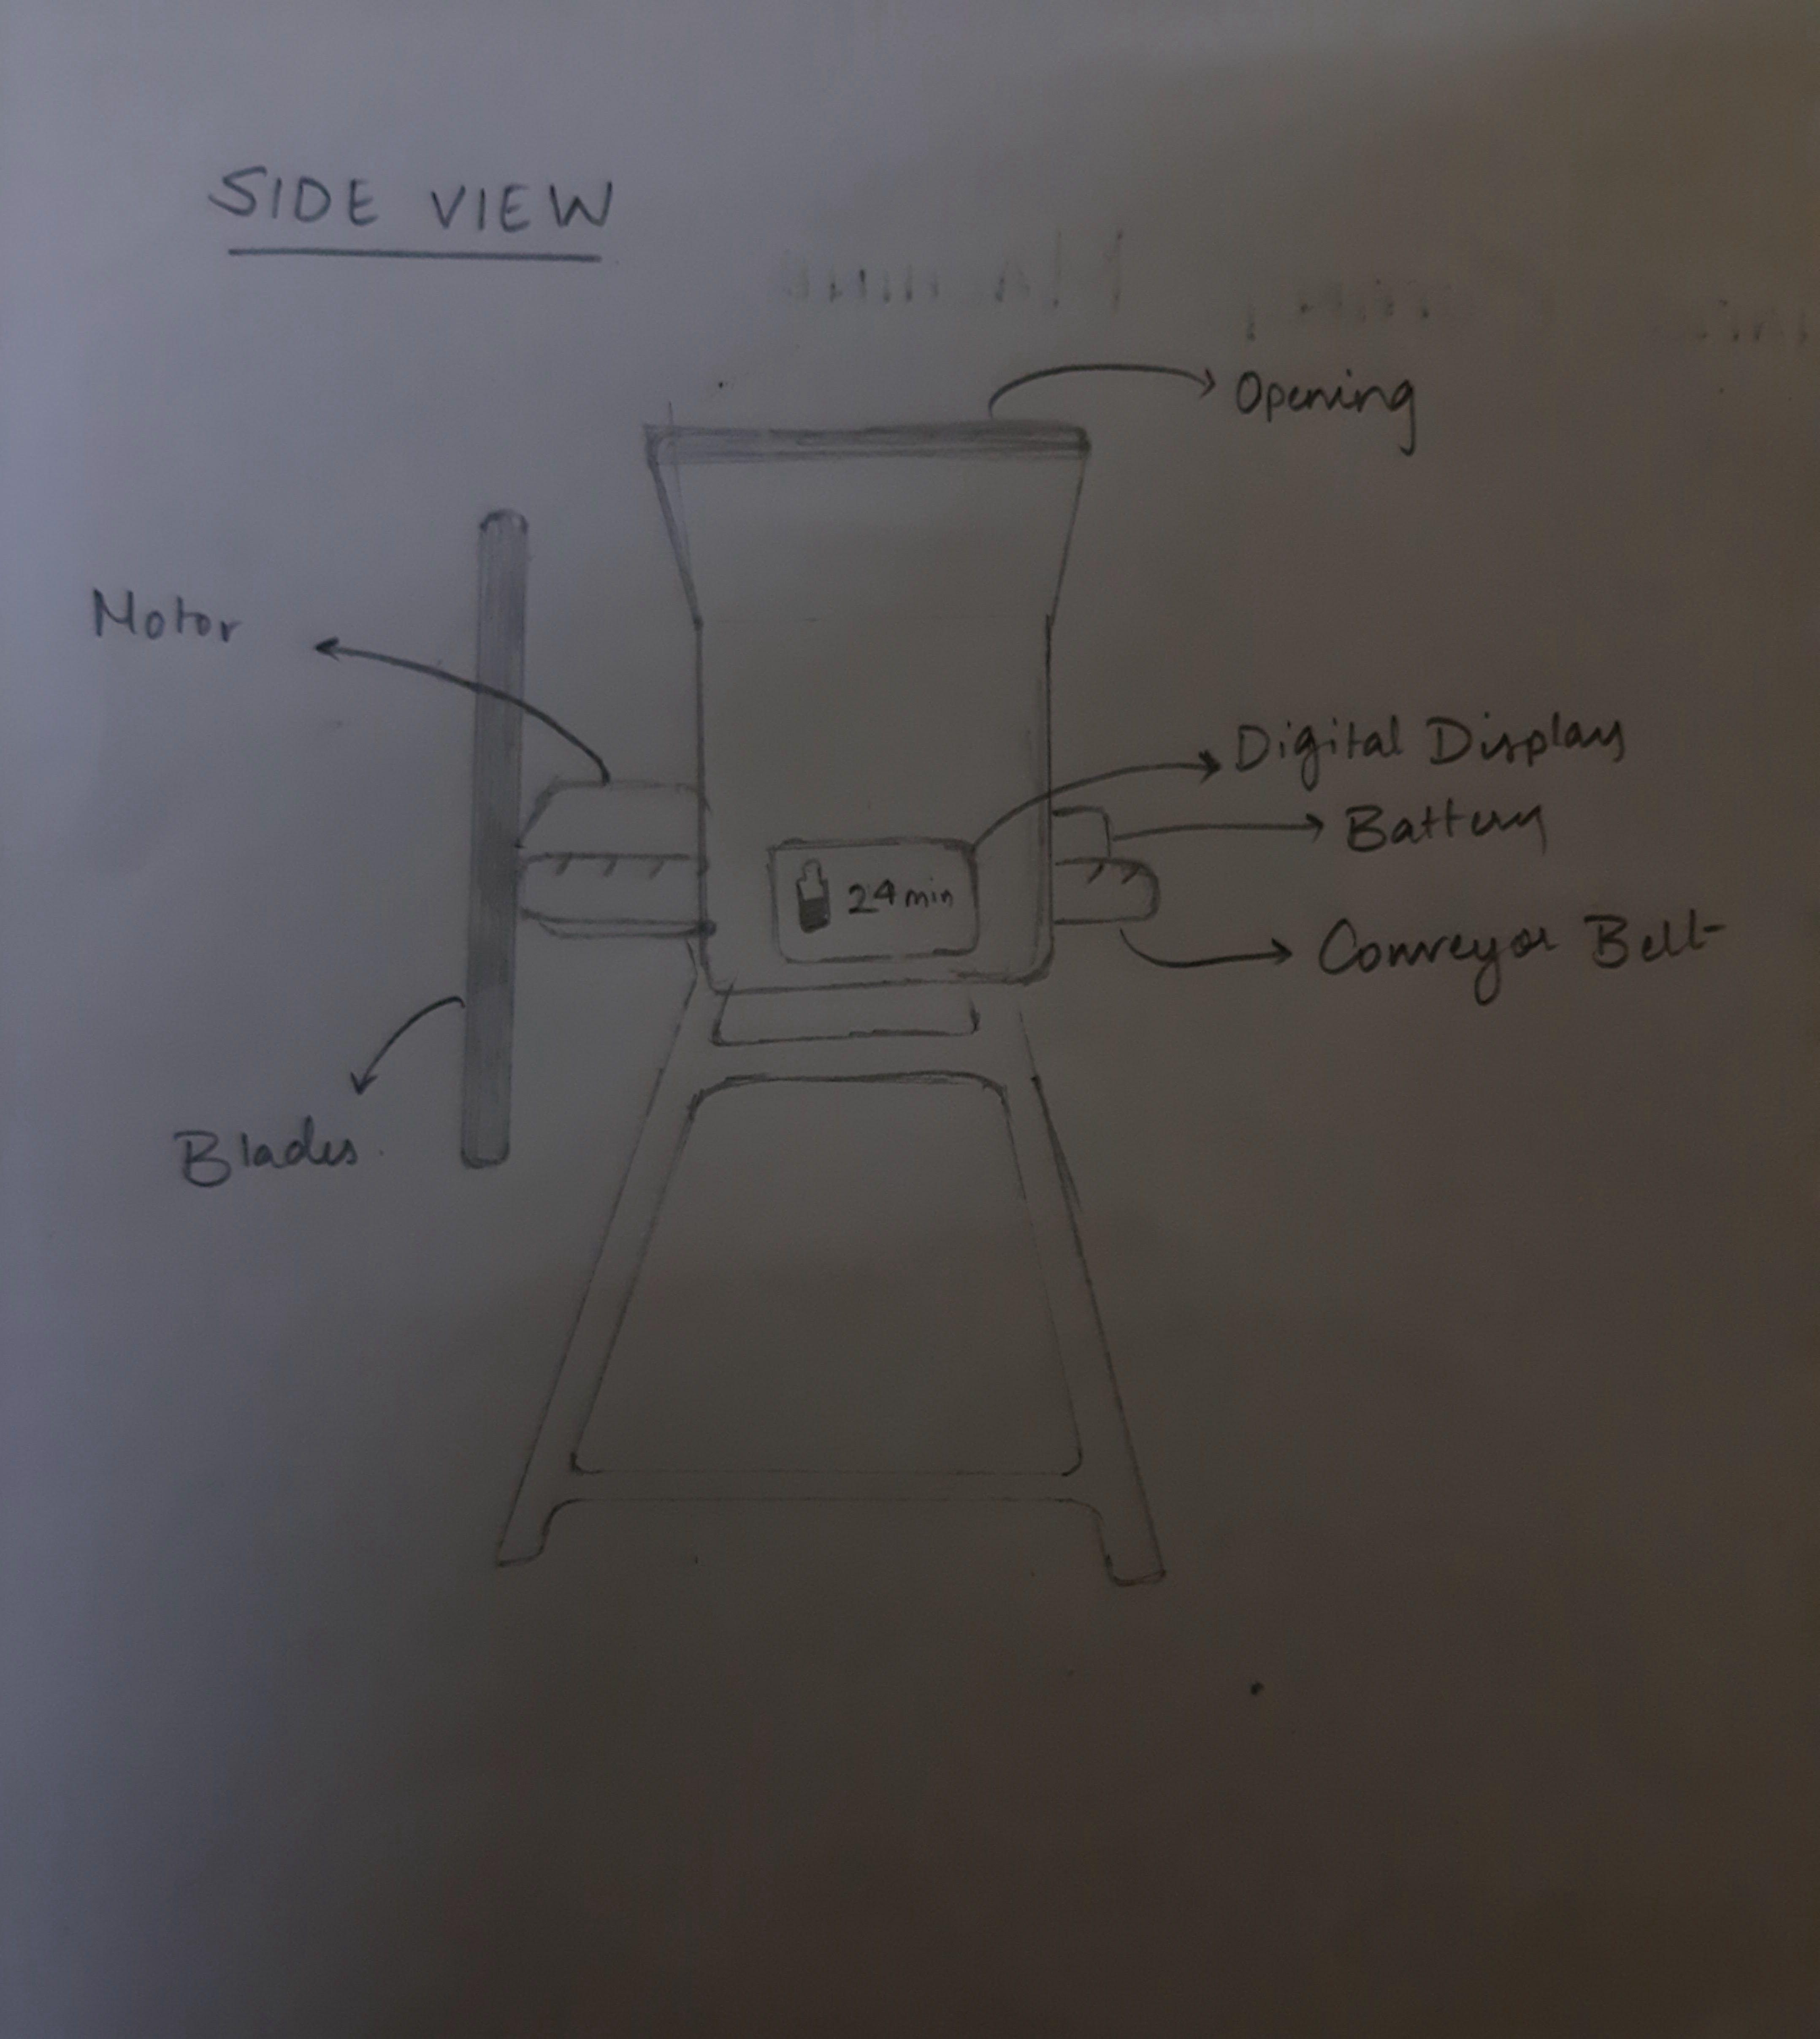 SIDE VIEW
Opening
Motor
Digital Display
Battery
24 min
Conveyor Belt
Blades